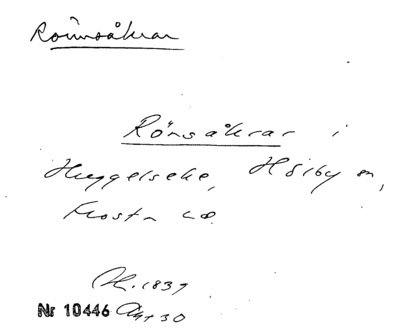 Rönnsåkrar
Rönsåkrar i
Huggelseke, Högby sn,
Frosta hd.
Ak. 1837
Nr 10446 Akt 30